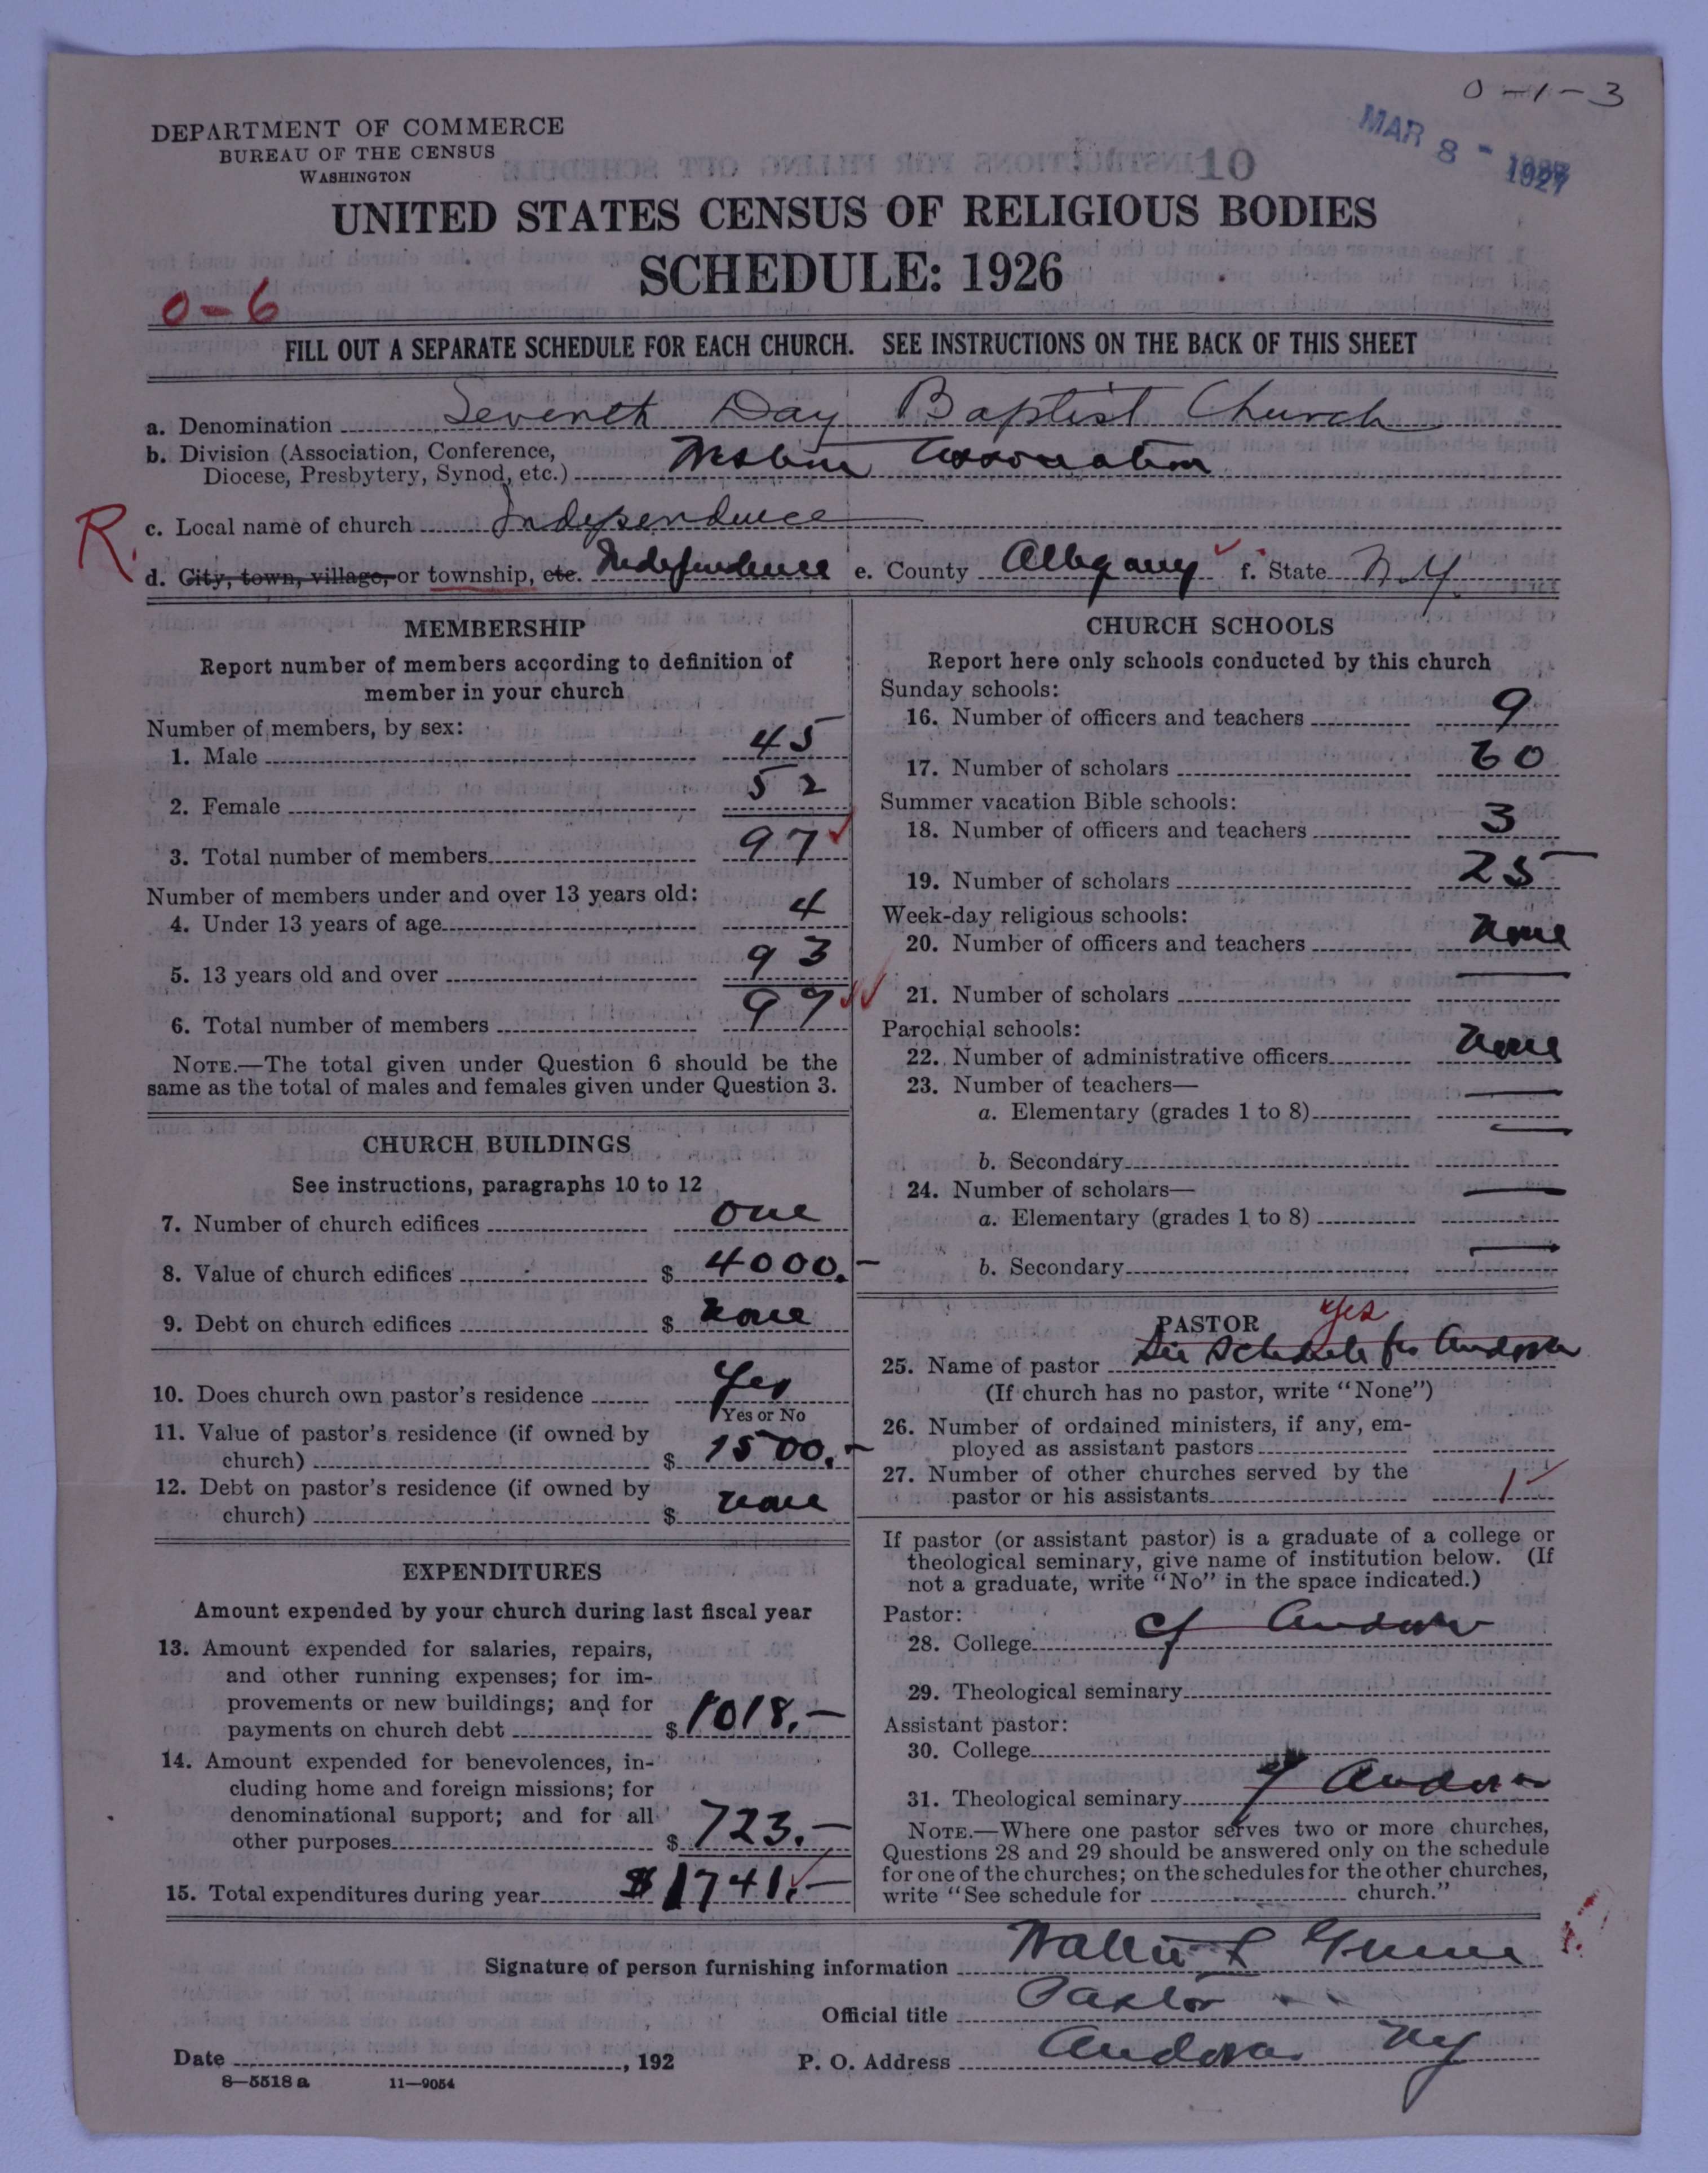 0-1-3
DEPARTMENT OF COMMERCE
BUREAU OF THE CENSUS
WASHINGTON
10
MAR 8 - 1927
UNITED STATES CENSUS OF RELIGIOUS BODIES
SCHEDULE: 1926
0-6
FILL OUT A SEPARATE SCHEDULE FOR EACH CHURCH. SEE INSTRUCTIONS ON THE BACK OF THIS SHEET
a. Denomination Seventh Day Baptist Church
b. Division (Association, Conference,
Diocese, Presbytery, Synod, etc.) Western Association
R. c. Local name of church Independence
d. City, town, village, or township, etc. Independence e. County Allegany f. State N.Y.
MEMBERSHIP
Report number of members according to definition of
member in your church
Number of members, by sex:
1. Male 45
2. Female 52
3. Total number of members 97
Number of members under and over 13 years old:
4. Under 13 years of age 4
5. 13 years old and over 93
6. Total number of members 97
NOTE.—The total given under Question 6 should be the
same as the total of males and females given under Question 3.
CHURCH BUILDINGS
See instructions, paragraphs 10 to 12
7. Number of church edifices one
8. Value of church edifices $ 4000.—
9. Debt on church edifices $ none
10. Does church own pastor's residence Yes
Yes or No
11. Value of pastor's residence (if owned by
church) $ 1500.—
12. Debt on pastor's residence (if owned by
church) $ none
EXPENDITURES
Amount expended by your church during last fiscal year
13. Amount expended for salaries, repairs,
and other running expenses; for im-
provements or new buildings; and for
payments on church debt $ 1018.—
14. Amount expended for benevolences, in-
cluding home and foreign missions; for
denominational support; and for all
other purposes $ 723.—
15. Total expenditures during year $1741.—
CHURCH SCHOOLS
Report here only schools conducted by this church
Sunday schools:
16. Number of officers and teachers 9
17. Number of scholars 60
Summer vacation Bible schools:
18. Number of officers and teachers 3
19. Number of scholars 25
Week-day religious schools:
20. Number of officers and teachers none
21. Number of scholars
Parochial schools:
22. Number of administrative officers none
23. Number of teachers—
a. Elementary (grades 1 to 8)
b. Secondary
24. Number of scholars—
a. Elementary (grades 1 to 8)
b. Secondary
PASTOR yes
25. Name of pastor See Schedule for Andover
(If church has no pastor, write "None")
26. Number of ordained ministers, if any, em-
ployed as assistant pastors
27. Number of other churches served by the
pastor or his assistants 1
If pastor (or assistant pastor) is a graduate of a college or
theological seminary, give name of institution below. (If
not a graduate, write "No" in the space indicated.)
Pastor:
28. College cf Andover
29. Theological seminary
Assistant pastor:
30. College
31. Theological seminary cf Andover
NOTE.—Where one pastor serves two or more churches,
Questions 28 and 29 should be answered only on the schedule
for one of the churches; on the schedules for the other churches,
write "See schedule for church."
Signature of person furnishing information Walter L Greene
Official title Pastor
Date , 192 P. O. Address Andover NY
8—5518 a 11—9054